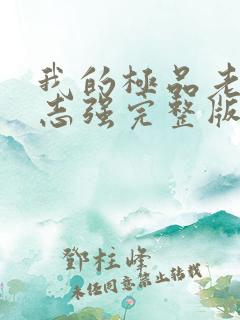 我的極品老
志强完整版
鄧柱峰
未经同意禁止转载